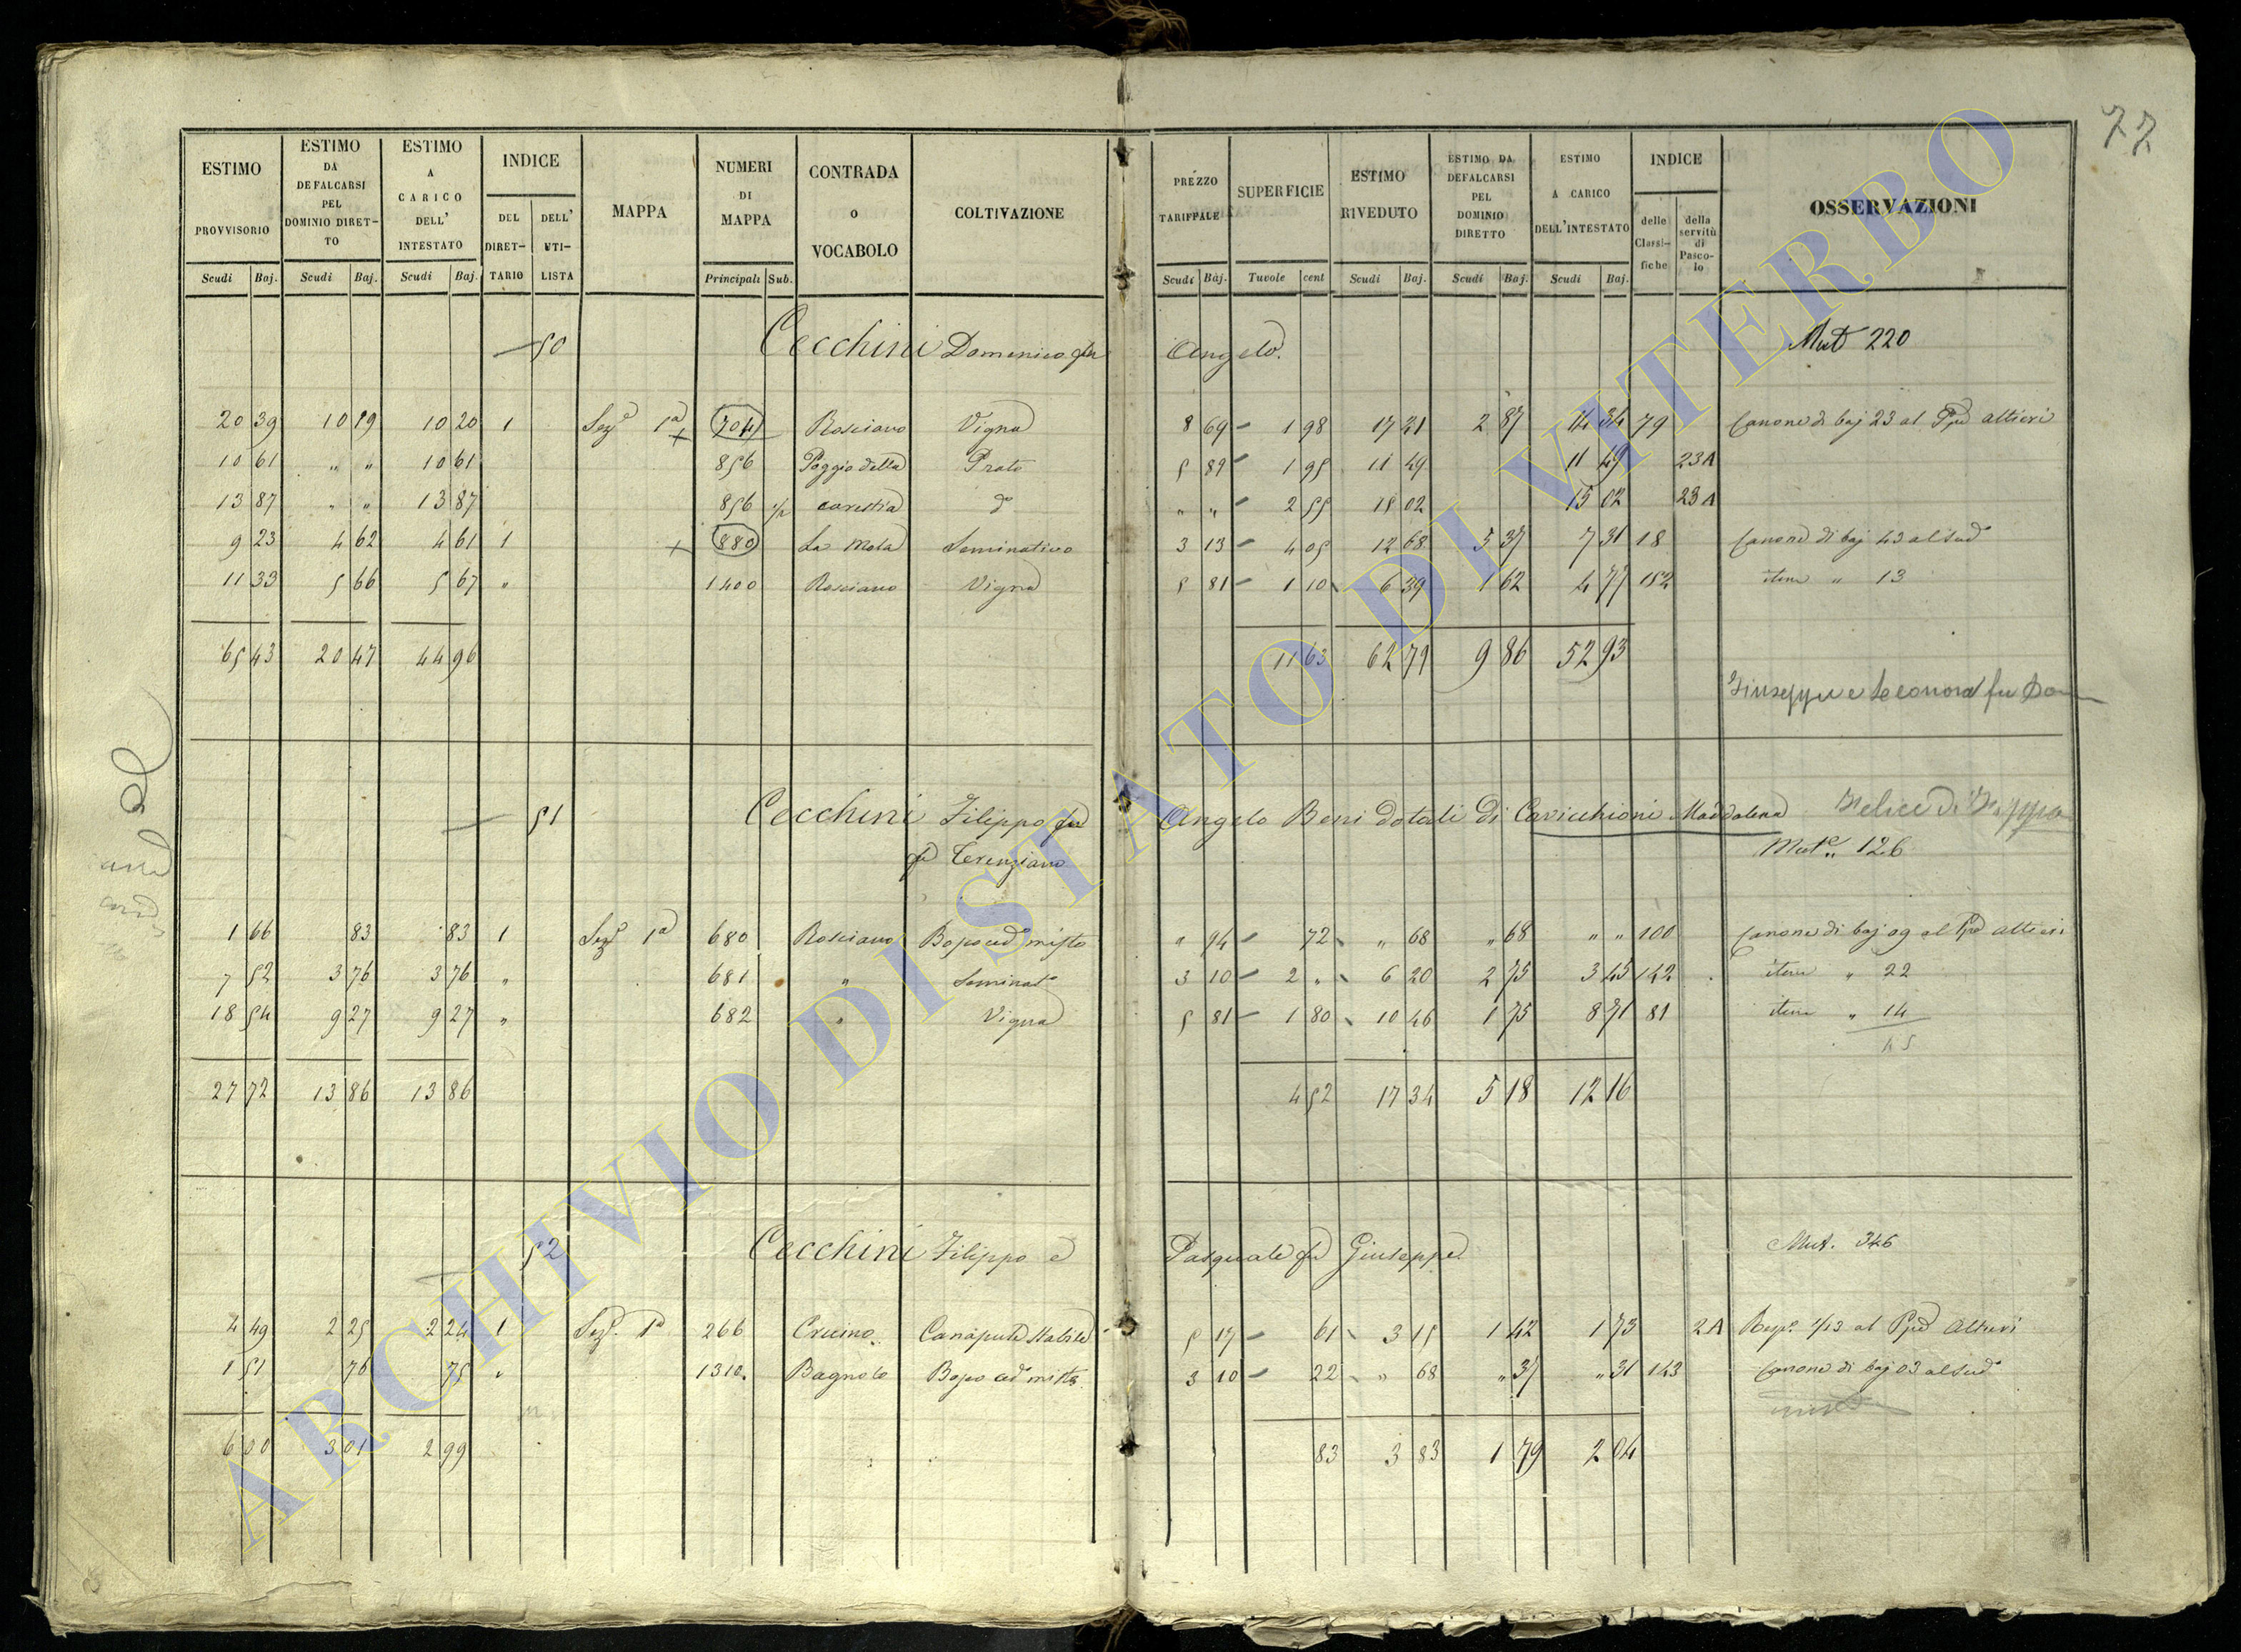 77
ESTIMO PROVVISORIO | ESTIMO DA DEFALCARSI PEL DOMINIO DIRETTO | ESTIMO A CARICO DELL' INTESTATO | INDICE DEL DIRETTARIO | DELL' UTILISTA | MAPPA | NUMERI DI MAPPA | CONTRADA O VOCABOLO | COLTIVAZIONE | PREZZO TARIFFALE | SUPERFICIE | ESTIMO RIVEDUTO | ESTIMO DA DEFALCARSI PEL DOMINIO DIRETTO | ESTIMO A CARICO DELL'INTESTATO | INDICE delle Classifiche | della servitù di Pascolo | OSSERVAZIONI
Scudi Baj. | Scudi Baj. | Scudi Baj. | Principali Sub. | Scudi Baj. | Tavole cent | Scudi Baj. | Scudi Baj. | Scudi Baj.
50 Cecchini Domenico fu Angelo. Mut 220
20 39 10 19 10 20 1 Sez.e 1a 704 Rosciano Vigna 8 69 1 98 17 21 2 87 14 34 79 Canone di baj 23 al Ppe Altieri
10 61 " " 10 61 856 Poggio della Prato 5 89 1 95 11 49 11 49 23A
13 87 " " 13 87 856 1/2 carestia do " " 2 55 15 02 15 02 23A
9 23 4 62 4 61 1 880 La Mola Seminativo 3 13 4 05 12 68 5 37 7 31 18 Canone di baj 43 al Sudo
11 33 5 66 5 67 " 1400 Rosciano Vigna 5 81 1 10 6 39 1 62 4 77 182 item " 13
65 43 20 47 44 96 11 63 62 79 9 86 52 93
Giuseppe e Leonora fu Dom
51 Cecchini Filippo fu Angelo Beni dotali di Cavicchioni Maddalena Felice di Filippo
fu Terenziano Mut.e 126
1 66 83 83 1 Sez.e 1a 680 Rosciano Bosco ced.o misto " 94 72 " 68 " 68 " " 100 Canone di baj 09 al Ppe Altieri
7 52 3 76 3 76 " 681 " Seminat.o 3 10 2 " 6 20 2 75 3 45 142 item " 22
18 54 9 27 9 27 " 682 " Vigna 5 81 1 80 10 46 1 75 8 71 81 item " 14
45
27 72 13 86 13 86 4 52 17 34 5 18 12 16
52 Cecchini Filippo e Pasquale fu Giuseppe. Mut. 346
4 49 2 25 2 24 1 Sez.e 1a 266 Crucino Canapule 5 17 61 3 15 1 42 1 73 2A Risp. 1/13 al Ppe Altieri
1 51 76 75 " 1310 Bagnolo Bosco ced.o misto 3 10 22 " 68 " 37 " 31 143 Canone di baj 03 al Sudo
6 00 3 01 2 99 83 3 83 1 79 2 04
ARCHIVIO DI STATO DI VITERBO